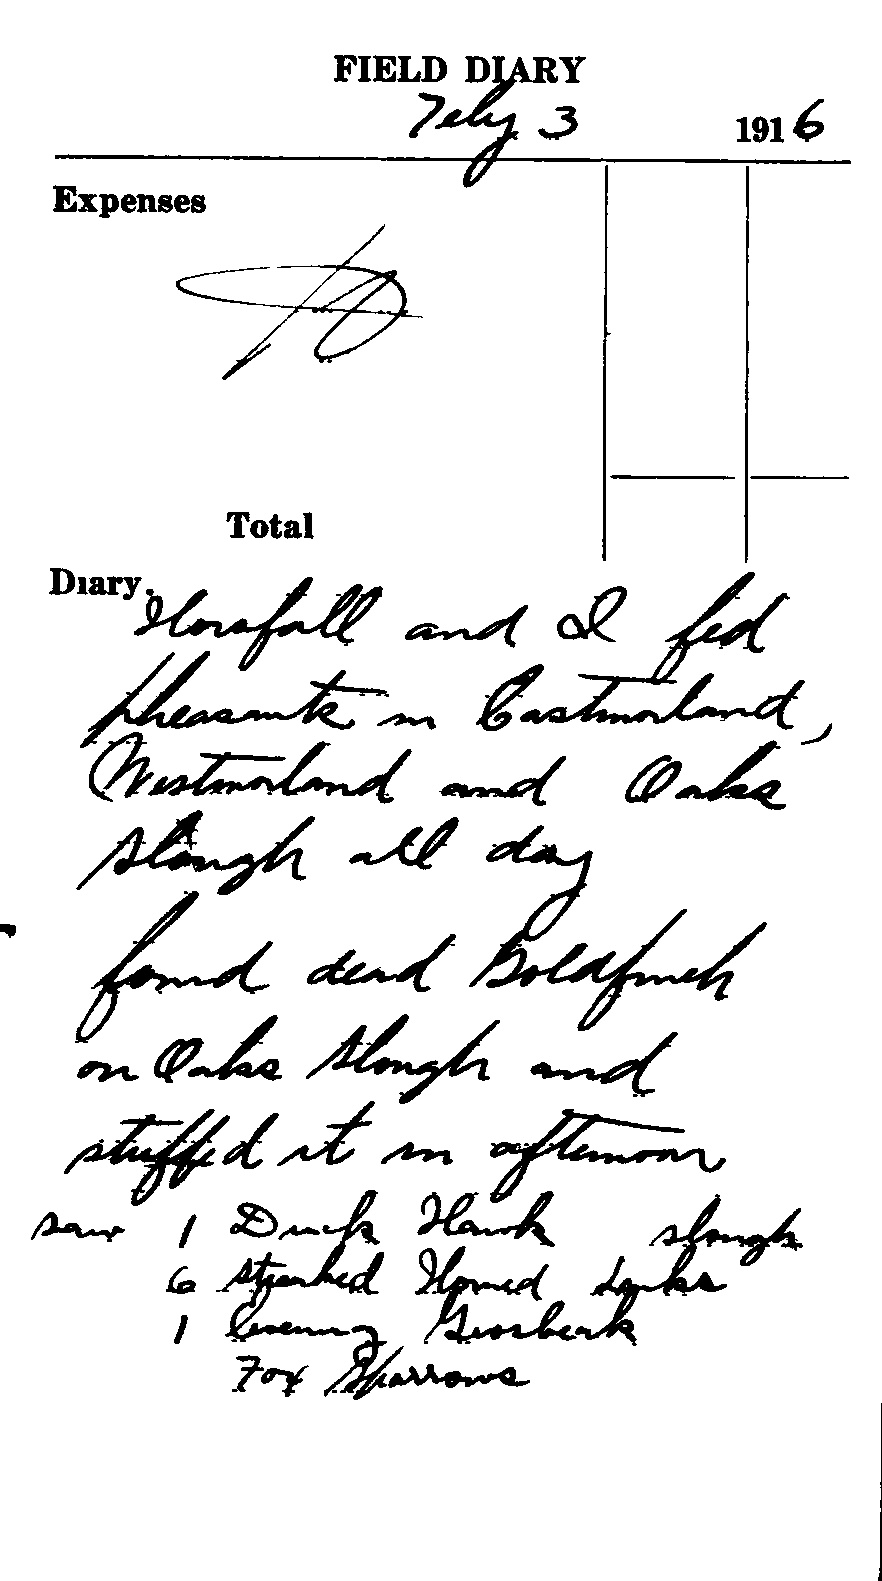 FIELD DIARY
Feby 3 1916
Expenses
Total
Diary.
Horsfall and I fed
pheasants in Eastmorland,
Westmorland and Oaks
slough all day
found dead Goldfinch
on Oaks slough and
stuffed it in afternoon
saw 1 Duck Hawk slough
6 streaked Horned Larks
1 Evening Grosbeak
Fox Sparrows